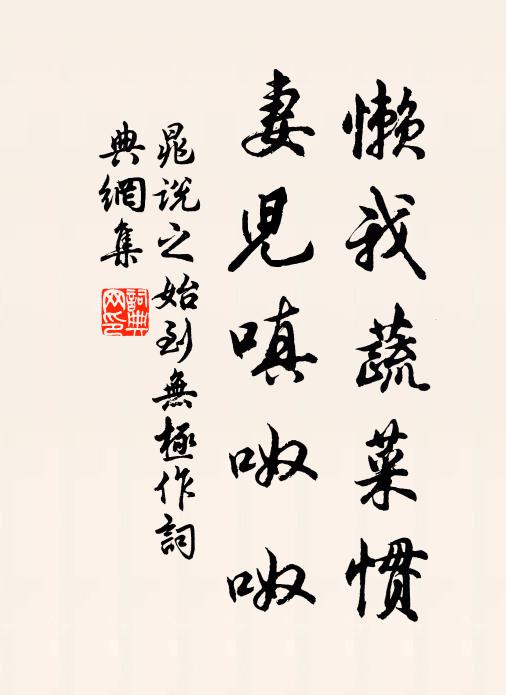 懒我蔬菜惯
妻兒嗔呶呶
晁说之始到無極作詞
典網集
詞典网印